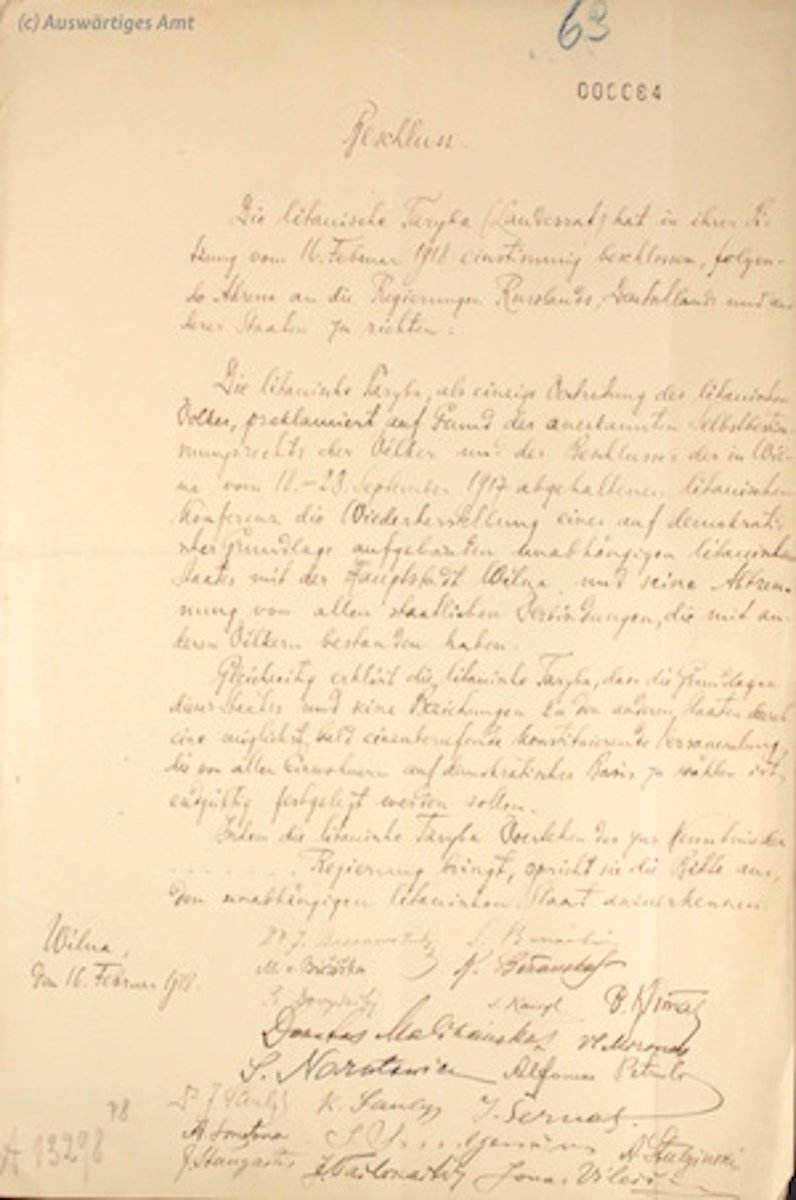 (c) Auswärtiges Amt
63
000084
Beschluss.
Die litauische Taryba (Landesrat) hat in ihrer Si-
tzung vom 16. Februar 1918 einstimmig beschlossen, folgen-
de Adresse an die Regierungen Russlands, Deutschlands und an-
derer Staaten zu richten:
Die litauische Taryba, als einzige Vertretung des litauischen
Volkes, proklamiert auf Grund des anerkannten Selbstbestim-
mungsrechts der Völker und des Beschlusses der in Wil-
na vom 18.-23. September 1917 abgehaltenen litauischen
Konferenz die Wiederherstellung eines auf demokrati-
scher Grundlage aufgebauten unabhängigen litauischen
Staates mit der Hauptstadt Wilna und seine Abtren-
nung von allen staatlichen Verbindungen, die mit an-
deren Völkern bestanden haben.
Gleichzeitig erklärt die litauische Taryba, dass die Grundlagen
dieses Staates und seine Beziehungen zu den anderen Staaten durch
eine möglichst bald einzuberufende konstituierende Versammlung,
die von allen Einwohnern auf demokratischer Basis zu wählen ist,
endgültig festgelegt werden sollen.
Indem die litauische Taryba Vorstehendes zur Kenntnis der
........ Regierung bringt, spricht sie die Bitte aus,
den unabhängigen litauischen Staat anzuerkennen
Wilna,
den 16. Februar 1918.
Dr. J. Bassanowitsch S.
M. v. Biržiška K. Bizauskas
P. Dovydaitis P. Klimas
Donatas Malinauskas Vl. Mironas
S. Narutowicz Alfonsas Petrulis
Dr. J. K. Šaulys J. Šernas
A. Smetona A. Stulginski
J. Staugaitis J. Vailokaitis Jonas Vileišis
A 13298
18